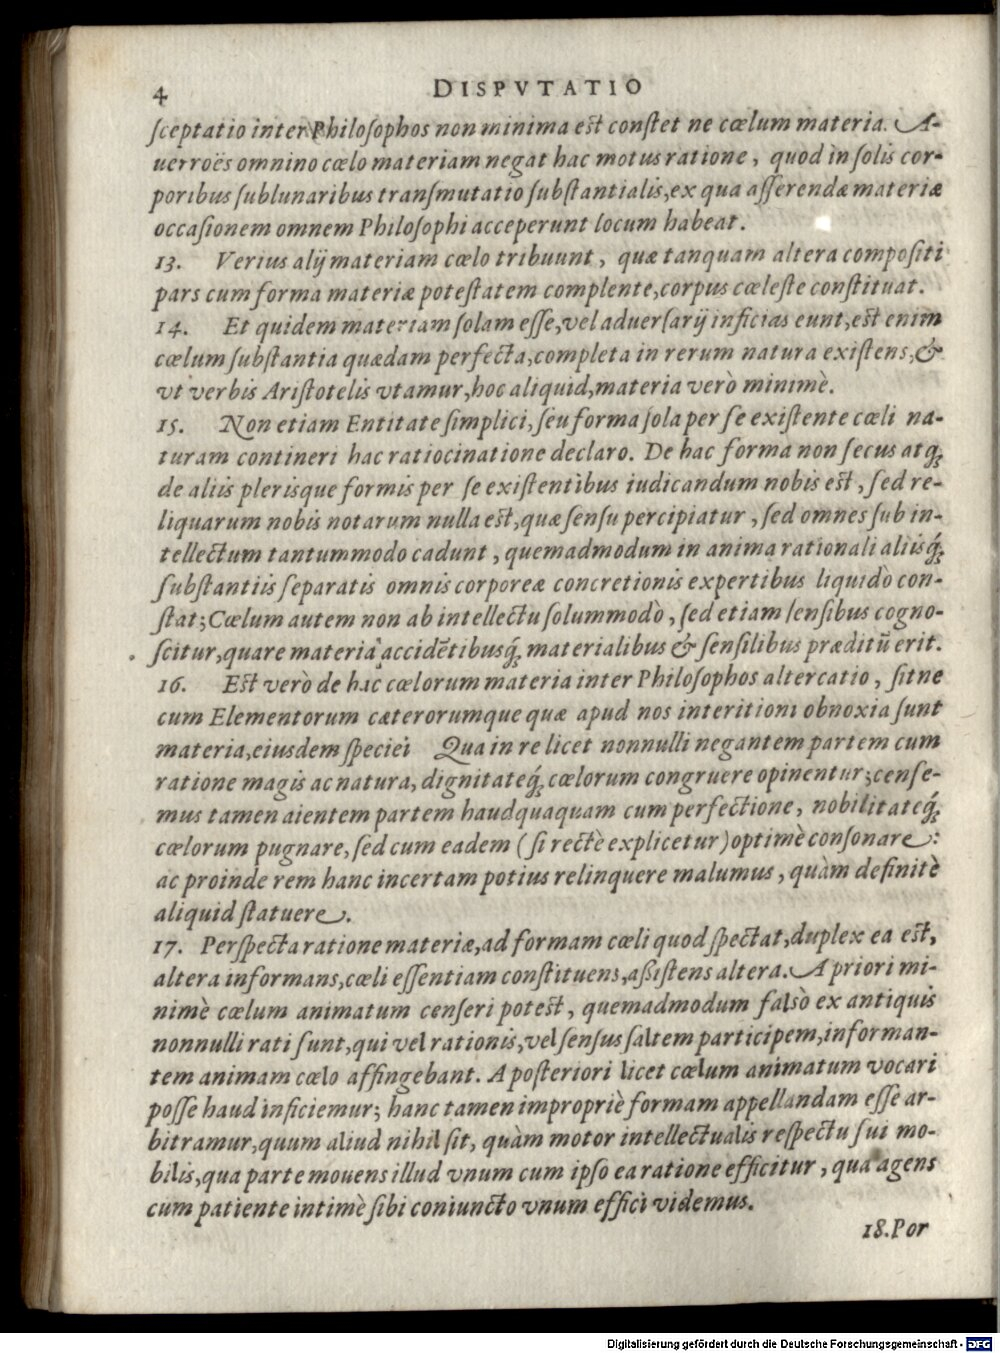 4 DISPVTATIO
ſceptatio inter Philoſophos non minima eſt conſtet ne cœlum materia. A-
uerroës omnino cœlo materiam negat hac motus ratione, quod in ſolis cor-
poribus ſublunaribus tranſmutatio ſubſtantialis, ex qua aſſerendæ materiæ
occaſionem omnem Philoſophi acceperunt locum habeat.
13. Verius alij materiam cœlo tribuunt, quæ tanquam altera compoſiti
pars cum forma materiæ poteſtatem complente, corpus cœleſte conſtituat.
14. Et quidem materiam ſolam eſſe, vel aduerſarij inficias eunt, eſt enim
cœlum ſubſtantia quædam perfecta, completa in rerum natura exiſtens, &
vt verbis Ariſtotelis vtamur, hoc aliquid, materia verò minimè.
15. Non etiam Entitate ſimplici, ſeu forma ſola per ſe exiſtente cœli na-
turam contineri hac ratiocinatione declaro. De hac forma non ſecus atq́;
de aliis pleriſque formis per ſe exiſtentibus iudicandum nobis eſt, ſed re-
liquarum nobis notarum nulla eſt, quæ ſenſu percipiatur, ſed omnes ſub in-
tellectum tantummodo cadunt, quemadmodum in anima rationali aliisq́;
ſubſtantiis ſeparatis omnis corporeæ concretionis expertibus liquidò con-
ſtat; Cœlum autem non ab intellectu ſolummodò, ſed etiam ſenſibus cogno-
ſcitur, quare materia accidētibusq́; materialibus & ſenſilibus præditū erit.
16. Eſt verò de hac cœlorum materia inter Philoſophos altercatio, ſitne
cum Elementorum cæterorumque quæ apud nos interitioni obnoxia ſunt
materia, eiusdem ſpeciei Qua in re licet nonnulli negantem partem cum
ratione magis ac natura, dignitateq́; cœlorum congruere opinentur; cenſe-
mus tamen aientem partem haudquaquam cum perfectione, nobilitateq́;
cœlorum pugnare, ſed cum eadem (ſi rectè explicetur) optimè conſonare:
ac proinde rem hanc incertam potius relinquere malumus, quàm definitè
aliquid ſtatuere.
17. Perſpecta ratione materiæ, ad formam cœli quod ſpectat, duplex ea eſt,
altera informans, cœli eſſentiam conſtituens, aßiſtens altera. A priori mi-
nimè cœlum animatum cenſeri poteſt, quemadmodum falsò ex antiquis
nonnulli rati ſunt, qui vel rationis, vel ſenſus ſaltem participem, informan-
tem animam cœlo affingebant. A poſteriori licet cœlum animatum vocari
poſſe haud inficiemur; hanc tamen impropriè formam appellandam eſſe ar-
bitramur, quum aliud nihil ſit, quàm motor intellectualis reſpectu ſui mo-
bilis, qua parte mouens illud vnum cum ipſo ea ratione efficitur, qua agens
cum patiente intimè ſibi coniuncto vnum effici videmus.
18. Por
Digitalisierung gefördert durch die Deutsche Forschungsgemeinschaft - DFG